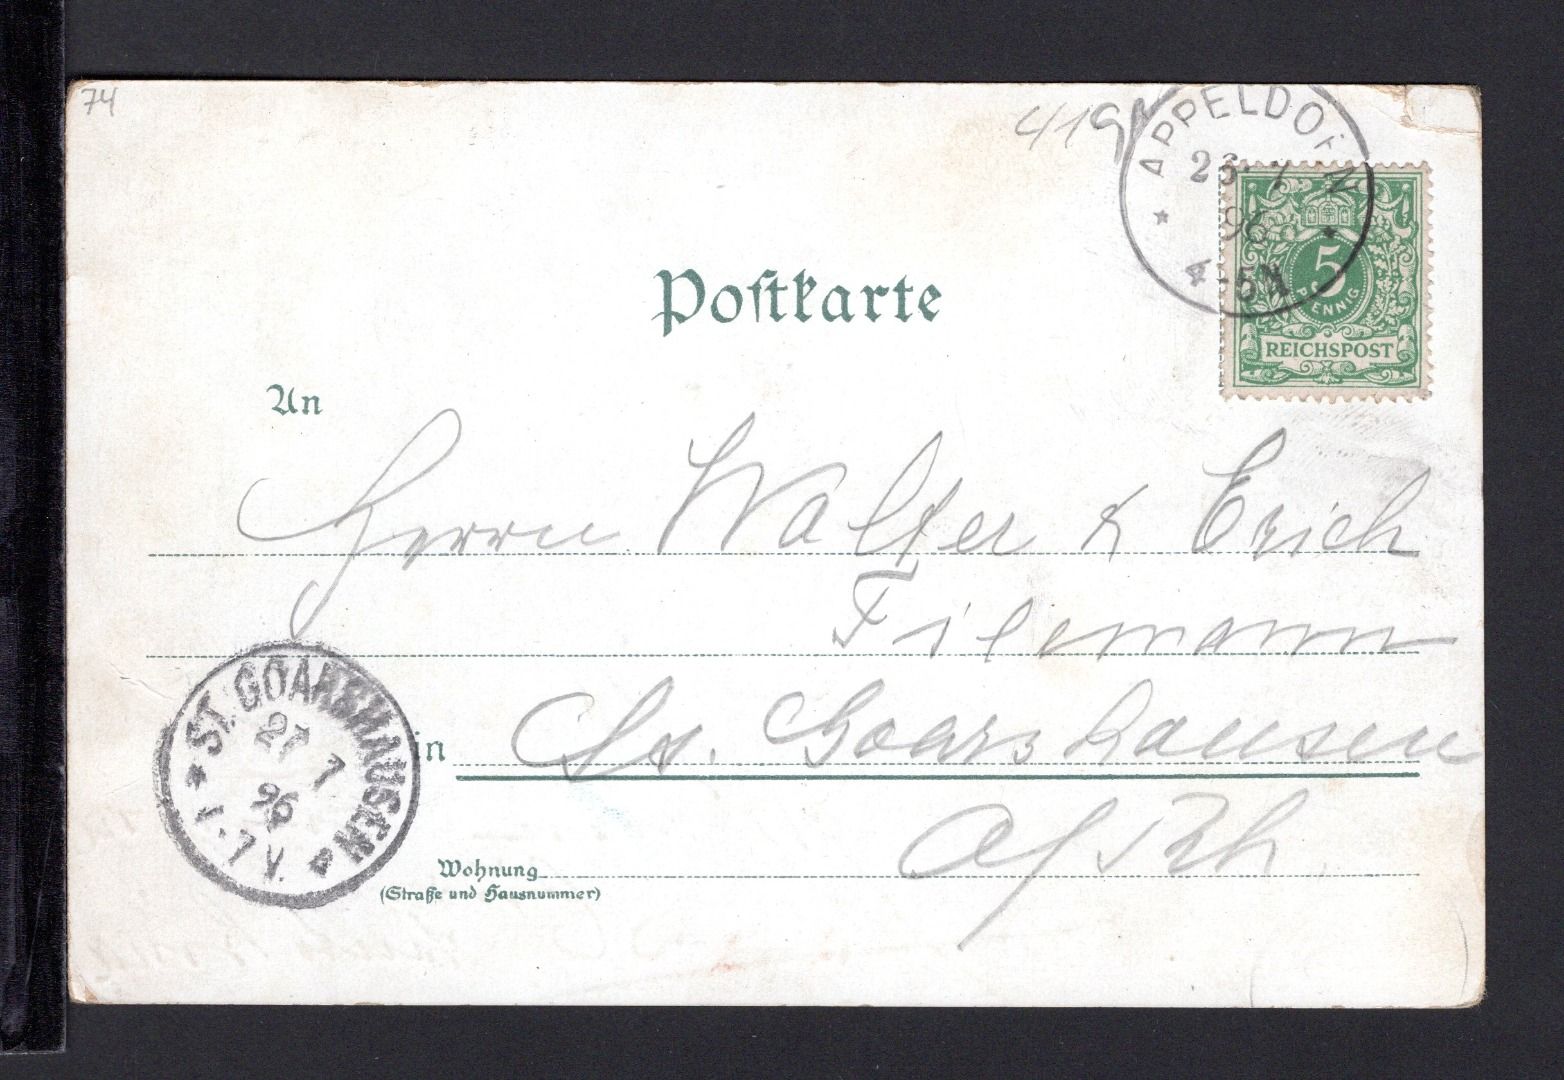 74
419
APPELDORN
26. 7
96
4-5N
5
PFENNIG
REICHSPOST
Postkarte
An
Herrn Walter & Erich
Filemann
in St. Goarshausen
a/Rh.
ST. GOARSHAUSEN
27 7
96
7-8V.
Wohnung
(Straße und Hausnummer)